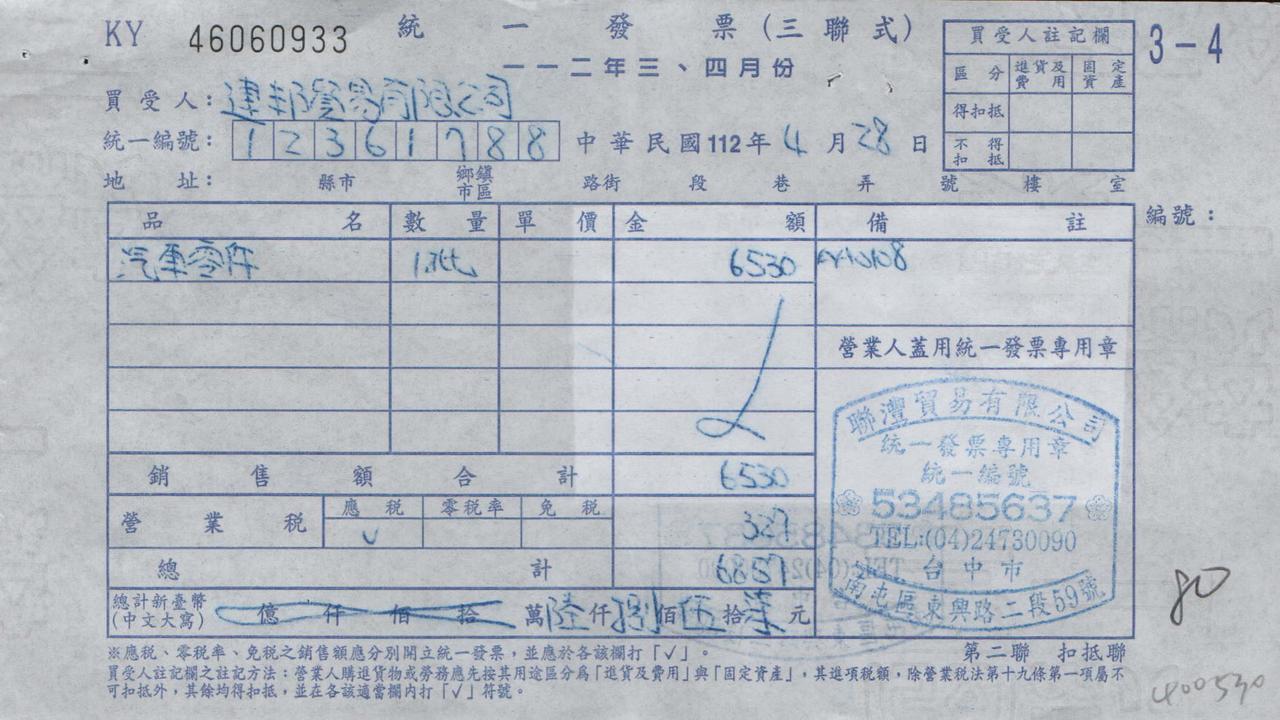 KY 46060933 統一發票(三聯式)
一一二年三、四月份
3-4
買受人註記欄
區分 進貨及費用 固定資產
得扣抵
不得扣抵
買受人:連邦貿易有限公司
統一編號:12361788 中華民國112年4月28日
地址: 縣市 鄉鎮市區 路街 段 巷 弄 號 樓 室
品名 數量 單價 金額 備註 編號:
汽車零件 1批 6530
營業人蓋用統一發票專用章
銷售額合計 6530
營業稅 應稅 零稅率 免稅 327
V
總計 6857
總計新臺幣(中文大寫) 億仟佰拾萬陸仟捌佰伍拾柒元
聯灃貿易有限公司
統一發票專用章
統一編號
53485637
TEL:(04)24730090
台中市
南屯區東興路二段59號
80
※應稅、零稅率、免稅之銷售額應分別開立統一發票,並應於各該欄打「√」。 第二聯 扣抵聯
買受人註記欄之註記方法:營業人購進貨物或勞務應先按其用途區分為「進貨及費用」與「固定資產」,其進項稅額,除營業稅法第十九條第一項屬不
可扣抵外,其餘均得扣抵,並在各該適當欄內打「√」符號。
400530